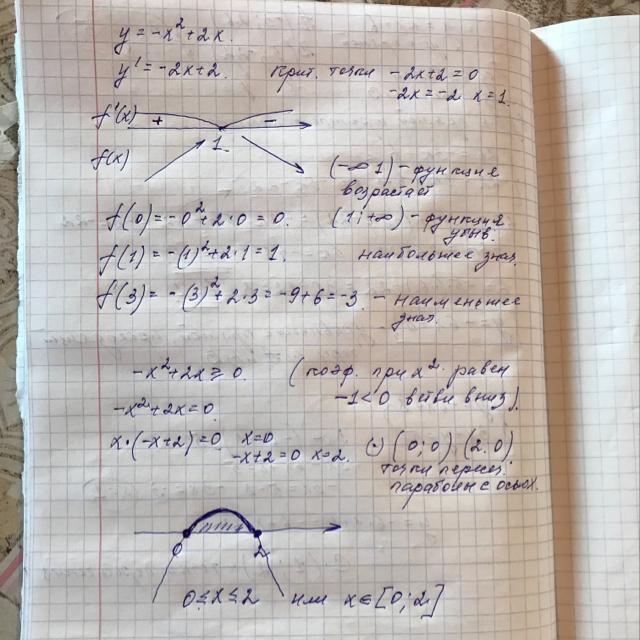 y = -x² + 2x.
y' = -2x + 2. крит. точки -2x + 2 = 0
-2x = -2 x = 1.
f'(x) + -
1
f(x)
(-∞ 1) - функция
возрастает
f(0) = -0² + 2·0 = 0. (1; +∞) - функция
убыв.
f(1) = -(1)² + 2·1 = 1. наибольшее знач.
f(3) = -(3)² + 2·3 = -9 + 6 = -3. - наименьшее
знач.
-x² + 2x ≥ 0. (коэф. при x² равен
-1 < 0 ветви вниз).
-x² + 2x = 0.
x·(-x + 2) = 0 x = 0 (·) (0; 0) (2. 0)
-x + 2 = 0 x = 2.
точки перес.
параболы с осью х.
0 2
0 ≤ x ≤ 2 или x ∈ [0; 2]